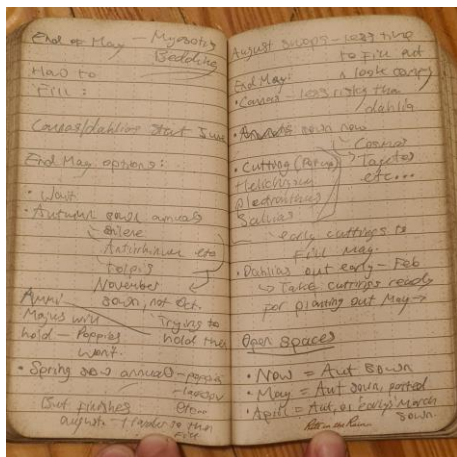 End of May - Myosotis
Bedding
Had to
Fill:
Cannas/dahlias start June
End May options:
• Wait
• Autumn sown annuals
Silene
Antirrhinum etc
Tolpis
November
sown, not Oct.
Ammi
Majus will
hold - Poppies
won't.
Trying to
hold them
• Spring sow annuals - poppies
- larkspur
But finishes etc...
august - harder to then
fill
August swaps - less time
to fill out
& look comfy
End May:
• Cannas - less risky than
dahlia
• Annuals sown now
Cosmos
Tagetes
etc...
• Cutting (Petunia)
Helichrysum
Plectranthus
Salvias
early cuttings to
fill May.
• Dahlias out early - Feb
Take cuttings ready
for planting out May
Open spaces
• Now = Aut sown
• May = Aut sown, potted
• April = Aut, or 'early' March
sown.